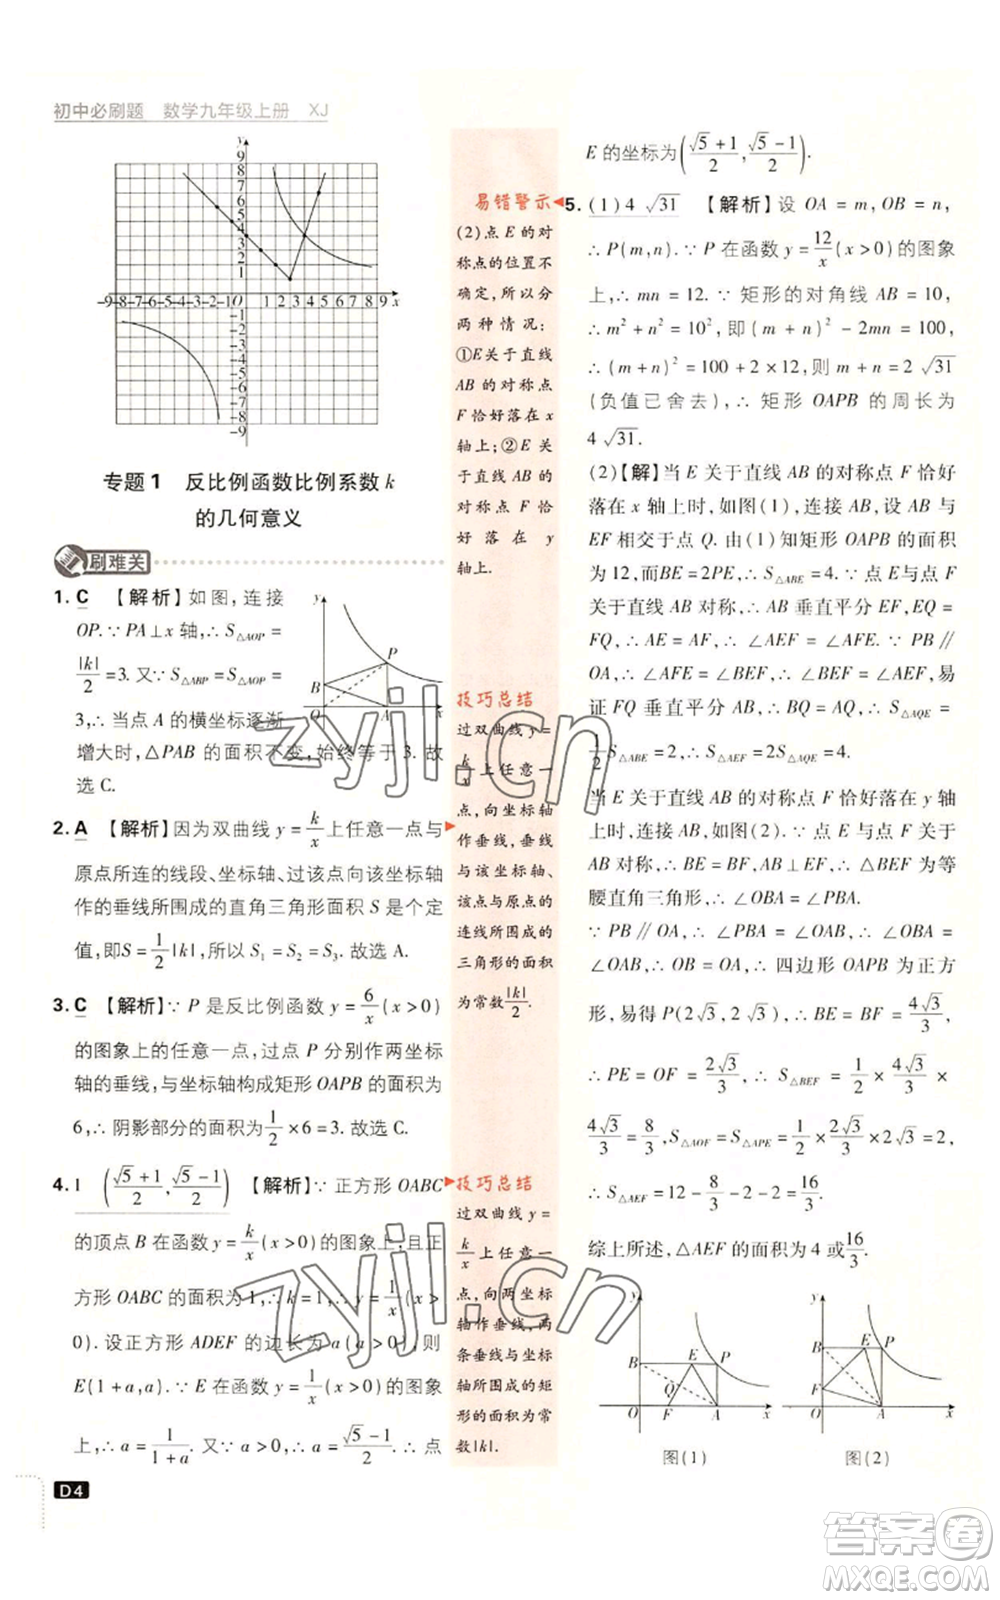 初中必刷题 数学九年级上册 XJ
y
9
8
7
6
5
4
3
2
1
-9-8-7-6-5-4-3-2-1 0 1 2 3 4 5 6 7 8 9 x
-1
-2
-3
-4
-5
-6
-7
-8
-9
专题1 反比例函数比例系数 k
的几何意义
刷难关
1. C 【解析】如图,连接
OP. ∵ PA⊥x 轴,∴ S△AOP =
|k|/2 = 3. 又∵ S△ABP = S△AOP =
3,∴ 当点 A 的横坐标逐渐
增大时,△PAB 的面积不变,始终等于 3. 故
选 C.
y
P
B
O A x
2. A 【解析】因为双曲线 y = k/x 上任意一点与
原点所连的线段、坐标轴、过该点向该坐标轴
作的垂线所围成的直角三角形面积 S 是个定
值,即S = 1/2|k|,所以 S₁ = S₂ = S₃. 故选 A.
3. C 【解析】∵ P 是反比例函数 y = 6/x (x>0)
的图象上的任意一点,过点 P 分别作两坐标
轴的垂线,与坐标轴构成矩形 OAPB 的面积为
6,∴ 阴影部分的面积为 1/2 ×6 = 3. 故选 C.
4. 1 ((√5+1)/2, (√5-1)/2) 【解析】∵ 正方形 OABC
的顶点 B 在函数 y = k/x (x>0) 的图象上,且正
方形 OABC 的面积为 1,∴ k = 1,∴ y = 1/x (x>
0). 设正方形 ADEF 的边长为 a(a>0),则
E(1+a,a). ∵ E 在函数 y = 1/x (x>0) 的图象
上,∴ a = 1/(1+a),∴ a = (√5-1)/2 (负值已舍去). ∴ 点
D4
易错警示
(2)点 E 的对
称点的位置不
确定,所以分
两种情况:
①E 关于直线
AB 的对称点
F 恰好落在 x
轴上;②E 关
于直线 AB 的
对称点 F 恰
好落在 y
轴上.
技巧总结
过双曲线 y =
k/x 上任意一
点,向坐标轴
作垂线,垂线
与该坐标轴、
该点与原点的
连线所围成的
三角形的面积
为常数 |k|/2.
技巧总结
过双曲线 y =
k/x 上任意一
点,向两坐标
轴作垂线,两
条垂线与坐标
轴所围成的矩
形的面积为常
数|k|.
E 的坐标为 ((√5+1)/2, (√5-1)/2).
5. (1)4√31 【解析】设 OA = m,OB = n,
∴ P(m,n). ∵ P 在函数 y = 12/x (x>0) 的图象
上,∴ mn = 12. ∵ 矩形的对角线 AB = 10,
∴ m² + n² = 100,即 (m+n)² - 2mn = 100,
∴ (m+n)² = 100 + 2×12,则 m + n = 2√31
(负值已舍去),∴ 矩形 OAPB 的周长为
4√31.
(2)【解】当 E 关于直线 AB 的对称点 F 恰好
落在 x 轴上时,如图(1),连接AF,设 AB 与
EF 相交于点 Q. 由(1)知矩形 OAPB 的面积
为 12,而BE = 2PE,∴ S△ABE = 4. ∵ 点 E 与点
F 关于直线 AB 对称,∴ AB 垂直平分 EF,EQ =
FQ,∴ AE = AF,∴ ∠AEF = ∠AFE. ∵ PB∥
OA,∴ ∠AFE = ∠BEF,∴ ∠BEF = ∠AEF,易
证 FQ 垂直平分 AB,∴ BQ = AQ,∴ S△AQE =
1/2 S△ABE = 2,∴ S△AEF = 2S△AQE = 4.
当 E 关于直线 AB 的对称点 F 恰好落在 y 轴
上时,连接 AB,如图(2). ∵ 点 E 与点 F 关于
AB 对称,∴ BE = BF,AB⊥EF,∴ △BEF 为等
腰直角三角形,∴ ∠OBA = ∠PBA.
∵ PB∥OA,∴ ∠PBA = ∠OAB,∴ ∠OBA =
∠OAB,∴ OA = OB,∴ 四边形 OAPB 为正方
形,易得 P(2√3,2√3),∴ BE = BF = 4√3/3,
∴ PE = OF = 2√3/3,∴ S△BEF = 1/2 × 4√3/3 ×
4√3/3 = 8/3,S△AOF = S△APE = 1/2 × 2√3/3 ×2√3 = 2,
∴ S△AEF = 12 - 8/3 - 2 - 2 = 16/3.
综上所述,△AEF 的面积为 4 或 16/3.
y
B E P
Q
O F A x
图(1)
y
B E P
F
O A x
图(2)
zyjl.cn
zyjl.cn
答案卷
MXQE.COM